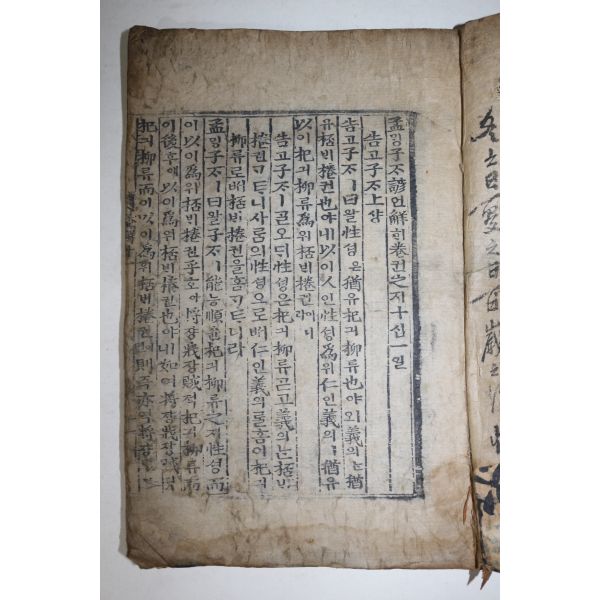 冬之日夏之日百歲之
孟ᄆᆡᆼ子ᄌᆞ諺언解ᄒᆡ卷권之지十십一일
告고子ᄌᆞ上샹
告고子ᄌᆞㅣ曰왈性셩은猶유杞긔柳류也야ㅣ오義의ᄂᆞᆫ猶
유桮ᄇᆡ棬권也야ㅣ니以이人인性셩爲위仁인義의ㅣ猶유
以이杞긔柳류爲위桮ᄇᆡ棬권이니라
告고子ᄌᆞㅣᄀᆞᆯ오ᄃᆡ性셩은杞긔柳류ᄀᆞᆮ고義의ᄂᆞᆫ桮ᄇᆡ
棬권ᄀᆞᄐᆞ니사ᄅᆞᆷ의性셩으로ᄡᅥ仁인義의ᄅᆞᆯ홈이杞긔
柳류로ᄡᅥ桮ᄇᆡ棬권을홈ᄀᆞᄐᆞ니라
孟ᄆᆡᆼ子ᄌᆞㅣ曰왈子ᄌᆞㅣ能능順슌杞긔柳류之지性셩而
이以이爲위桮ᄇᆡ棬권乎호아將쟝戕쟝賊적杞긔柳류而
이後후에以이爲위桮ᄇᆡ棬권也야ㅣ니如여將쟝戕쟝賊적
杞긔柳류而이以이爲위桮ᄇᆡ棬권이면則즉亦역將쟝戕쟝